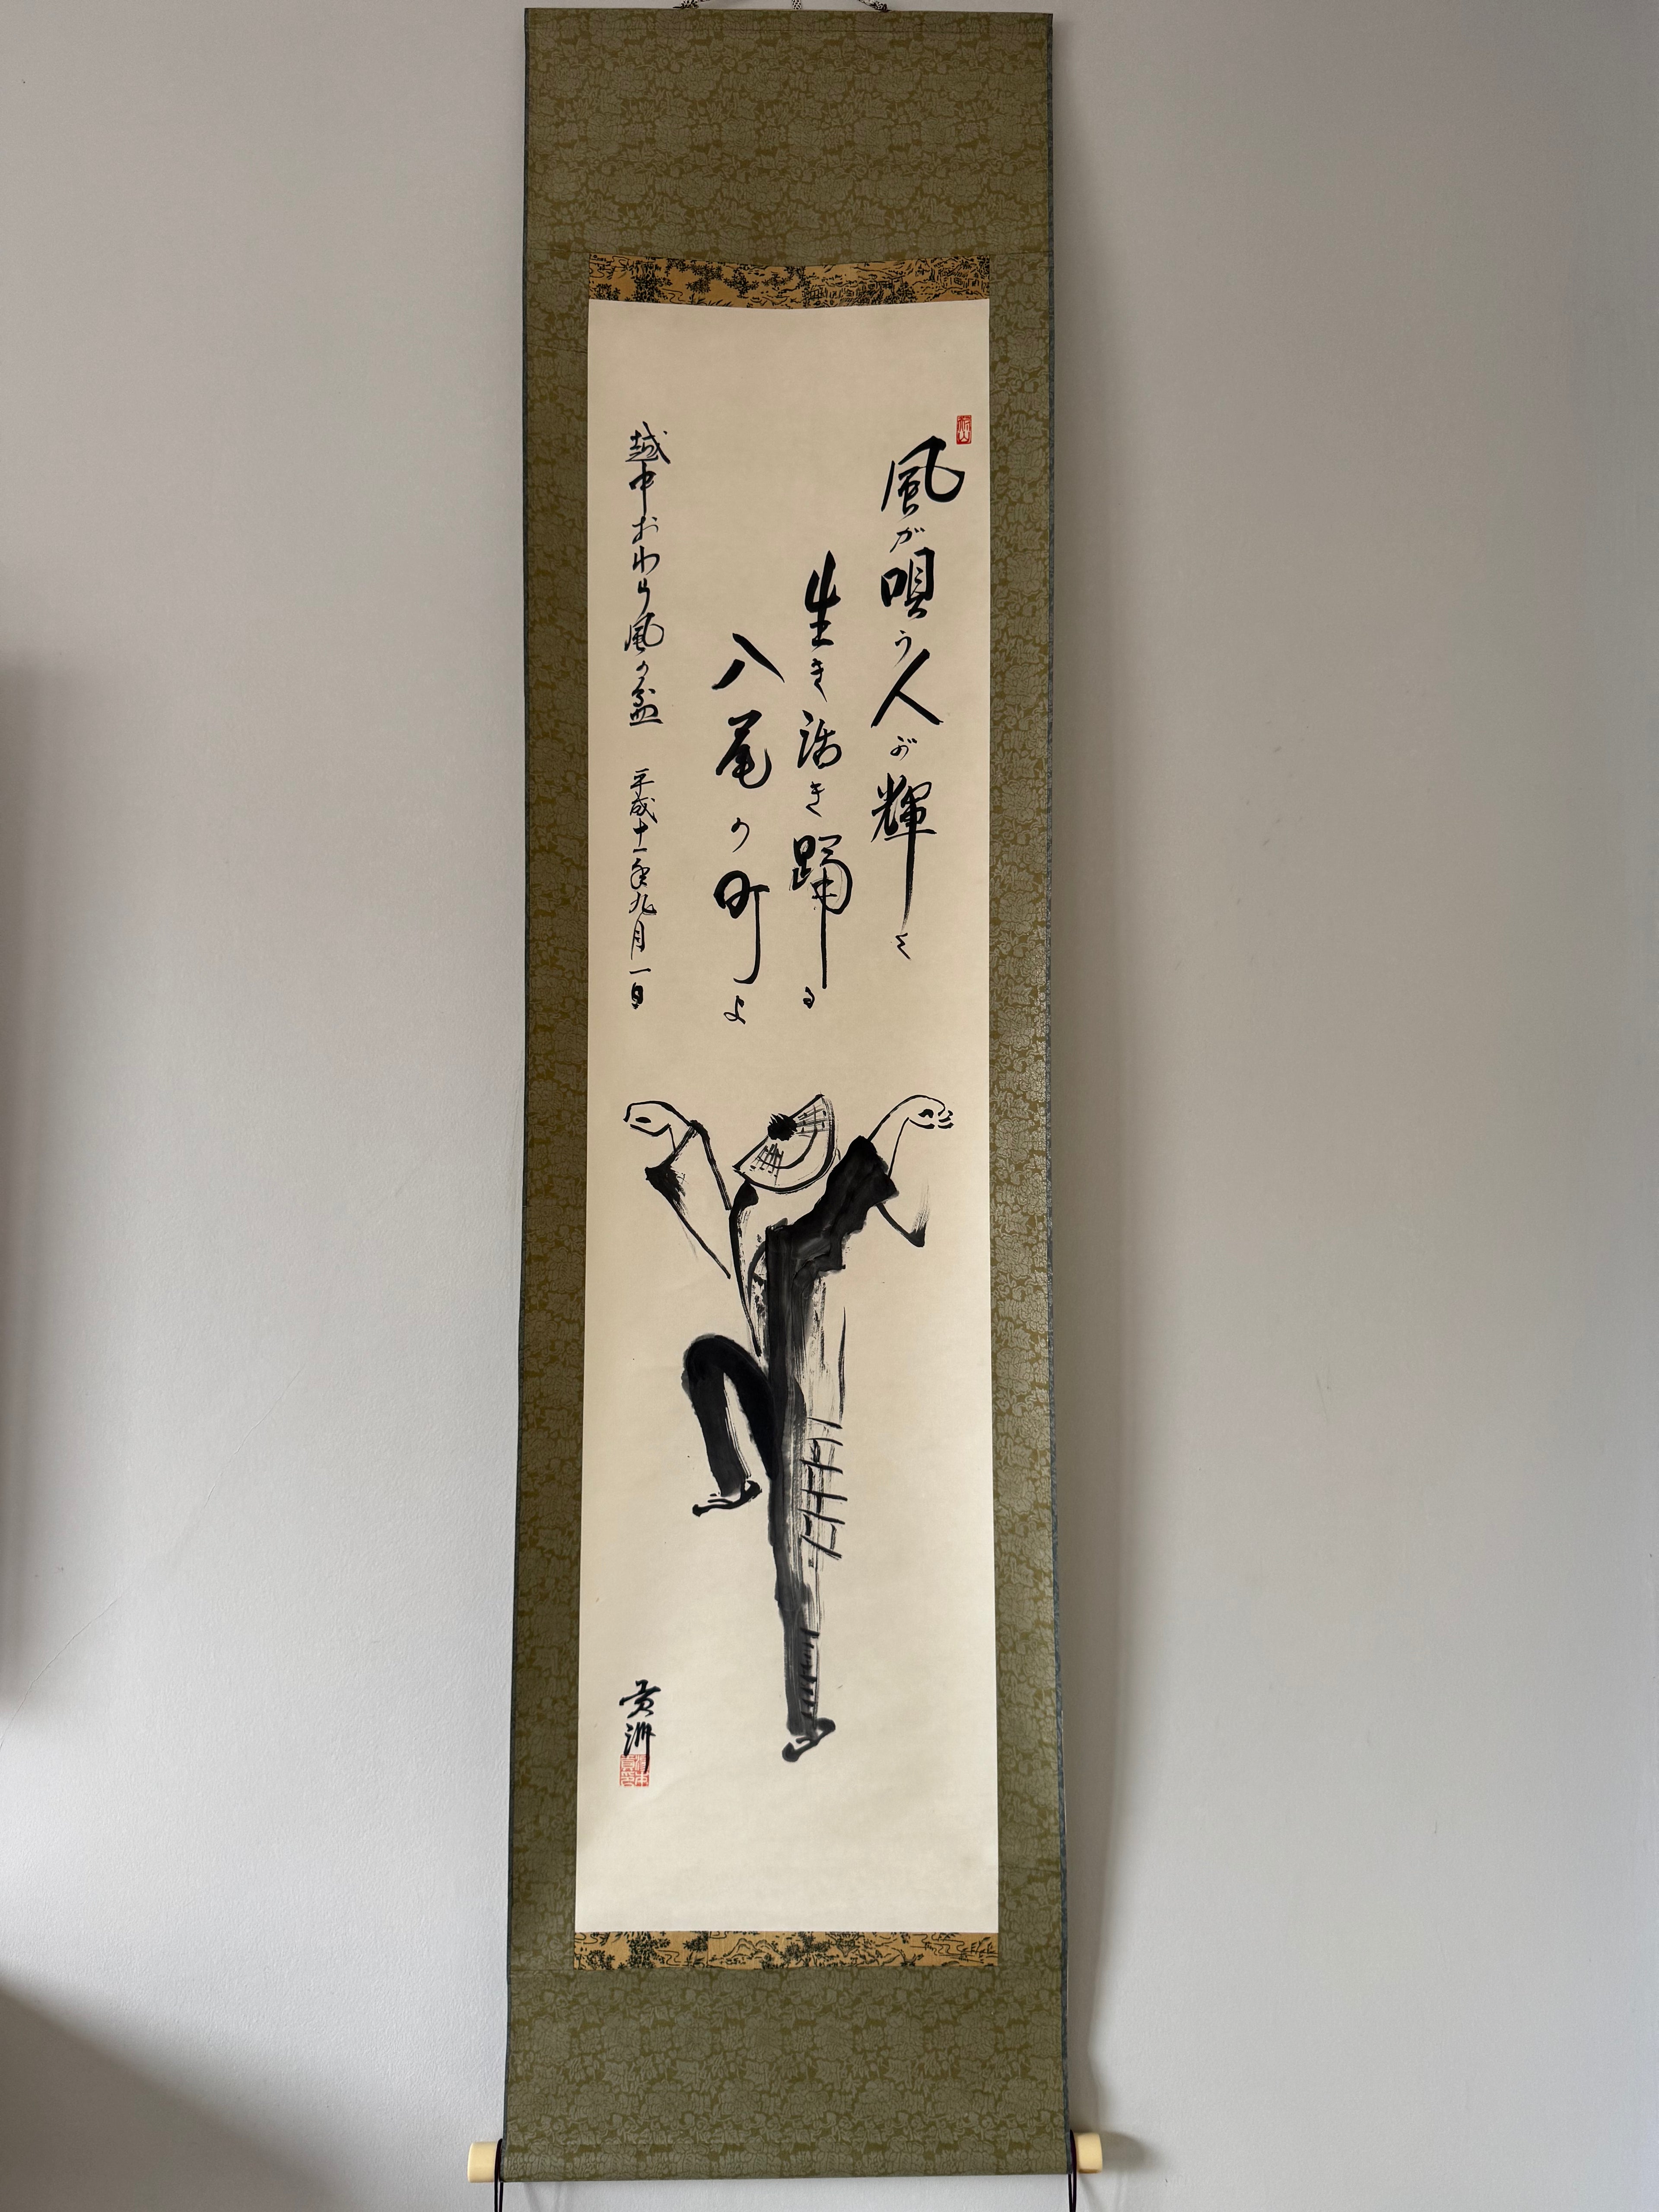 風が唄う人が輝く
生き活き踊る
八尾の町よ
越中おわら風の盆 平成十一年九月一日